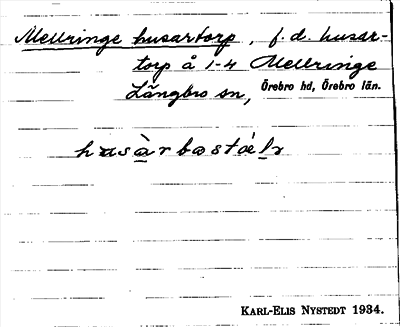 Mellringe husartorp, f.d. husar-
torp å 1-4 Mellringe
Långbro sn, Örebro hd, Örebro län.
husàrbostä́lr
KARL-ELIS NYSTEDT 1934.